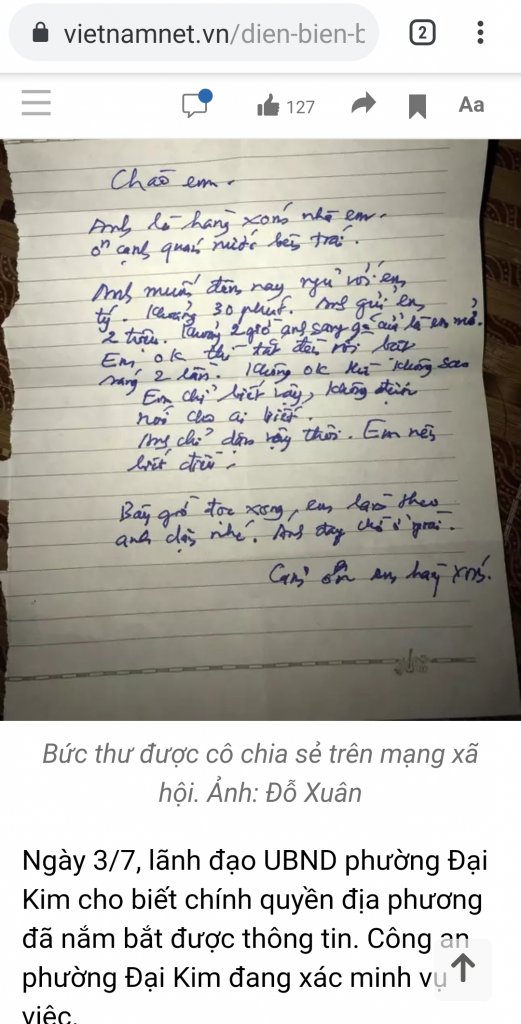 vietnamnet.vn/dien-bien-b
2
127
Aa
Chào em.
Anh là hàng xóm nhà em.
ở cạnh quán nước bên trái.
Anh muốn đêm nay ngủ với em
tý. Khoảng 30 phút. Anh gửi em
2 triệu. Khoảng 2 giờ anh sang gõ cửa là em mở.
Em ok thì tắt đèn rồi bật
sáng 2 lần. Không ok thì không sao
Em chỉ biết vậy, không được
nói cho ai biết.
Anh chỉ dặn vậy thôi. Em nên
biết điều.
Bây giờ đọc xong, em làm theo
anh dặn nhé. Anh
Cảm ơn em hàng xóm.
Bức thư được cô chia sẻ trên mạng xã
hội. Ảnh: Đỗ Xuân
Ngày 3/7, lãnh đạo UBND phường Đại
Kim cho biết chính quyền địa phương
đã nắm bắt được thông tin. Công an
phường Đại Kim đang xác minh vụ
việc.